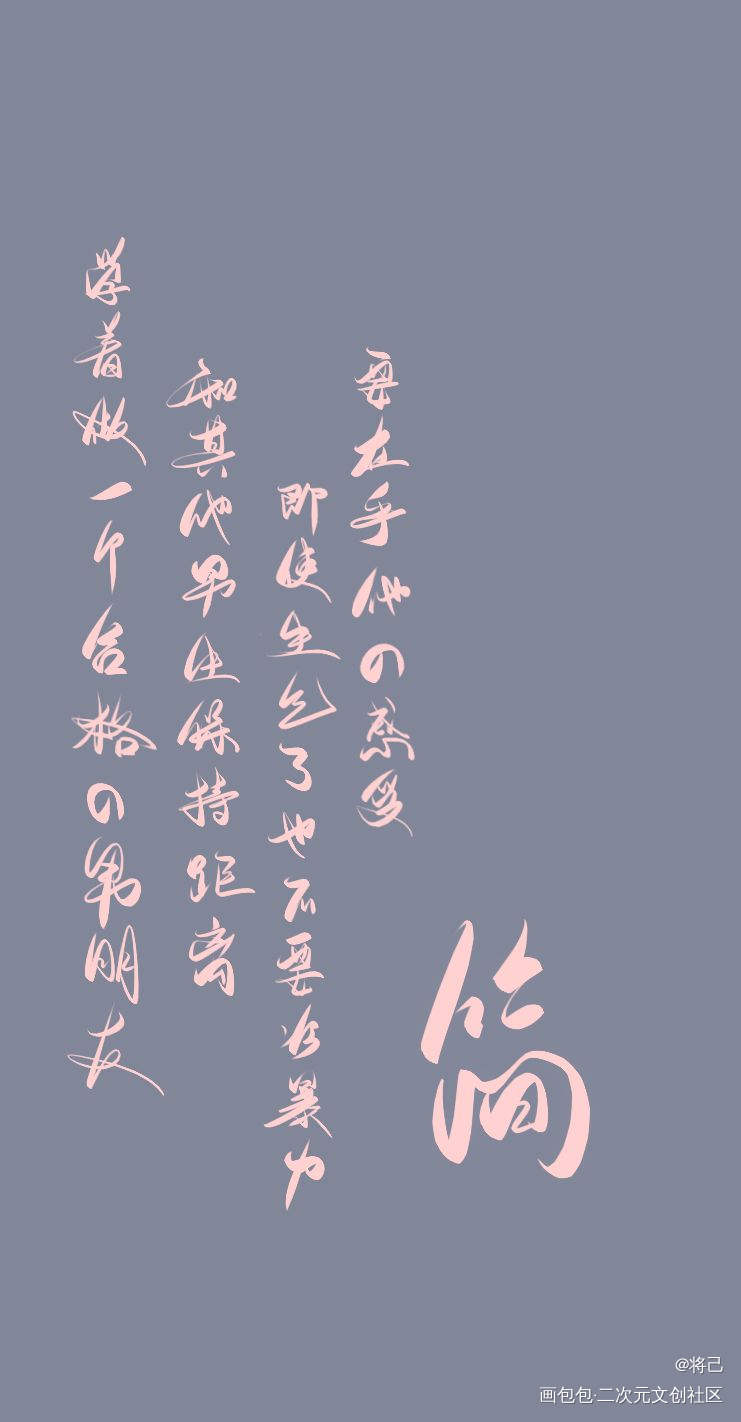 简
要在乎他の感受
即使生气了也不要冷暴力
和其他男生保持距离
学着做一个合格の男朋友
@将己
画包包·二次元文创社区